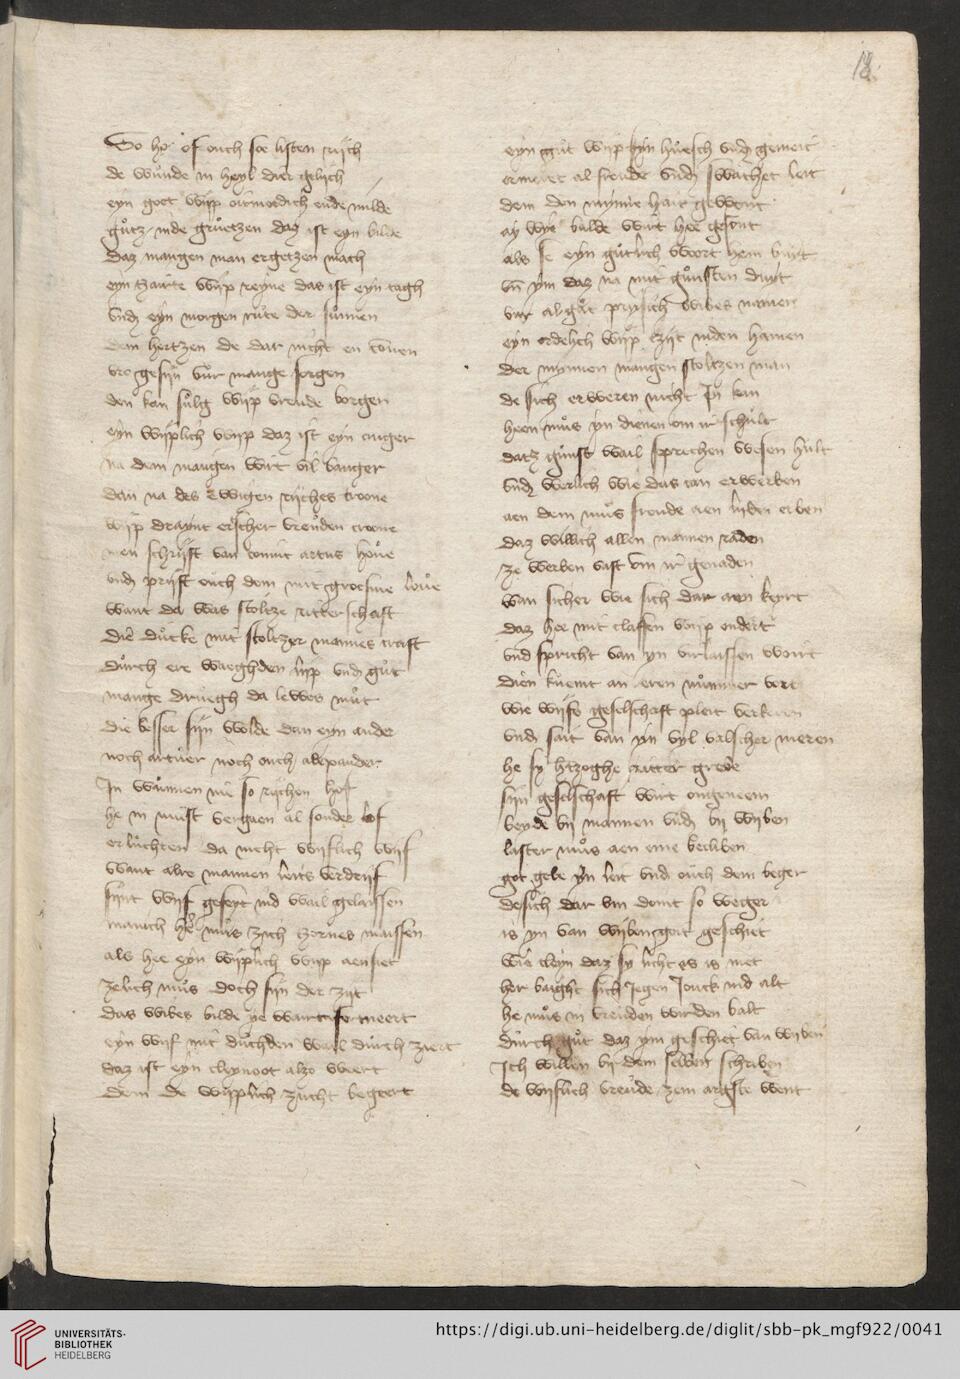 18.
So he of ouch soe listen rijch
de wunde in heyl dier gelijch
eyn goet wijp oitmoedich ende milde
guetz inde gruetzen daz ist eyn bilde
daz mangen man ergetzen mach
eyn tzarte wijp reyne das ist eyn tagh
vnd eyn morgen rute der sunnen
dem hertzen de dar nicht en
vro gesijn vur mange sorgen
den kan sulig wijp vreude borgen
eyn wijplich wijp daz ist eyn
na dem mangen wirt vil banger
dan na des ewigen rijches troone
wijp draynt vreuden croone
men schrijft van coninc artus houe
vnd prijst ouch dem mit groesme loue
want da was stoltze ritterschaft
die ducke mit stoltzer mannes craft
durch ere waeghden lijp vnd gut
mange druegh da lewes mut
die besser sijn wolde dan eyn ander
noch artuer noch ouch alexander
In wunnen nie so rijchen hof
he in must vergaen al sonder lof
erluchten da nicht wijflich wijf
want alre mannen leits verdrijf
sijnt wijf geseyt ind wail gelaissen
manich he mus zich zornes maissen
als hee eyn wijplich wijp aensiet
zelich mus doch sijn der zijt
das wibes bilde ye
eyn wijf mit duchden wail durch ziert
daz ist eyn cleynoot alzo weert
dem de wijplich zucht begeert
eyn gut wijp kyn huesch vnd gemeit
ermeret al freude vnd swachet leit
dem den mynne hait gewont
ay wye balde wirt hee gesont
als se eyn gutlich woort hem buyt
vn ym daz na mit gunsten duyt
vur al gut prijsich wibes namen
eyn ordelich wijp tzijt inden hamen
der mynnen mangen stoltzen man
de sich erweren nicht In kan
heen mus yn dienen om ir schult
datz gunst wail sprechen wesen hult
vnd werlich wie das can erwerben
aen dem mus freude aen lijden erben
daz willich allen mannen raden
ze werben vast om ir genaden
wan sicher wie sich dar aen keyrt
daz hee mit claffen wijp
vnd spricht van yn virlaissen wort
dien kuemt an eren nummer vort
wie wijfs geselschaft pleit verkeren
vnd sait van yn vyl valscher meren
he sy htzoghe ritter greve
sijn geselschaft wirt ongeneem
beyde bij mannen vnd bij wijben
laster mus aen eme becliben
got gebe yn leit vnd ouch dem beger
de sich dar vm doint so weger
is yn van wijben gut geschiet
wie cleyn daz sy licht es is niet
her baight sich Jegen Jonck ind alt
he mus in vreuden werden balt
durch gut daz ym geschiet van wijben
Ich willen bij dem selben schriben
de wijflich vreude zem argste went
UNIVERSITÄTS-
BIBLIOTHEK
HEIDELBERG
https://digi.ub.uni-heidelberg.de/diglit/sbb-pk_mgf922/0041